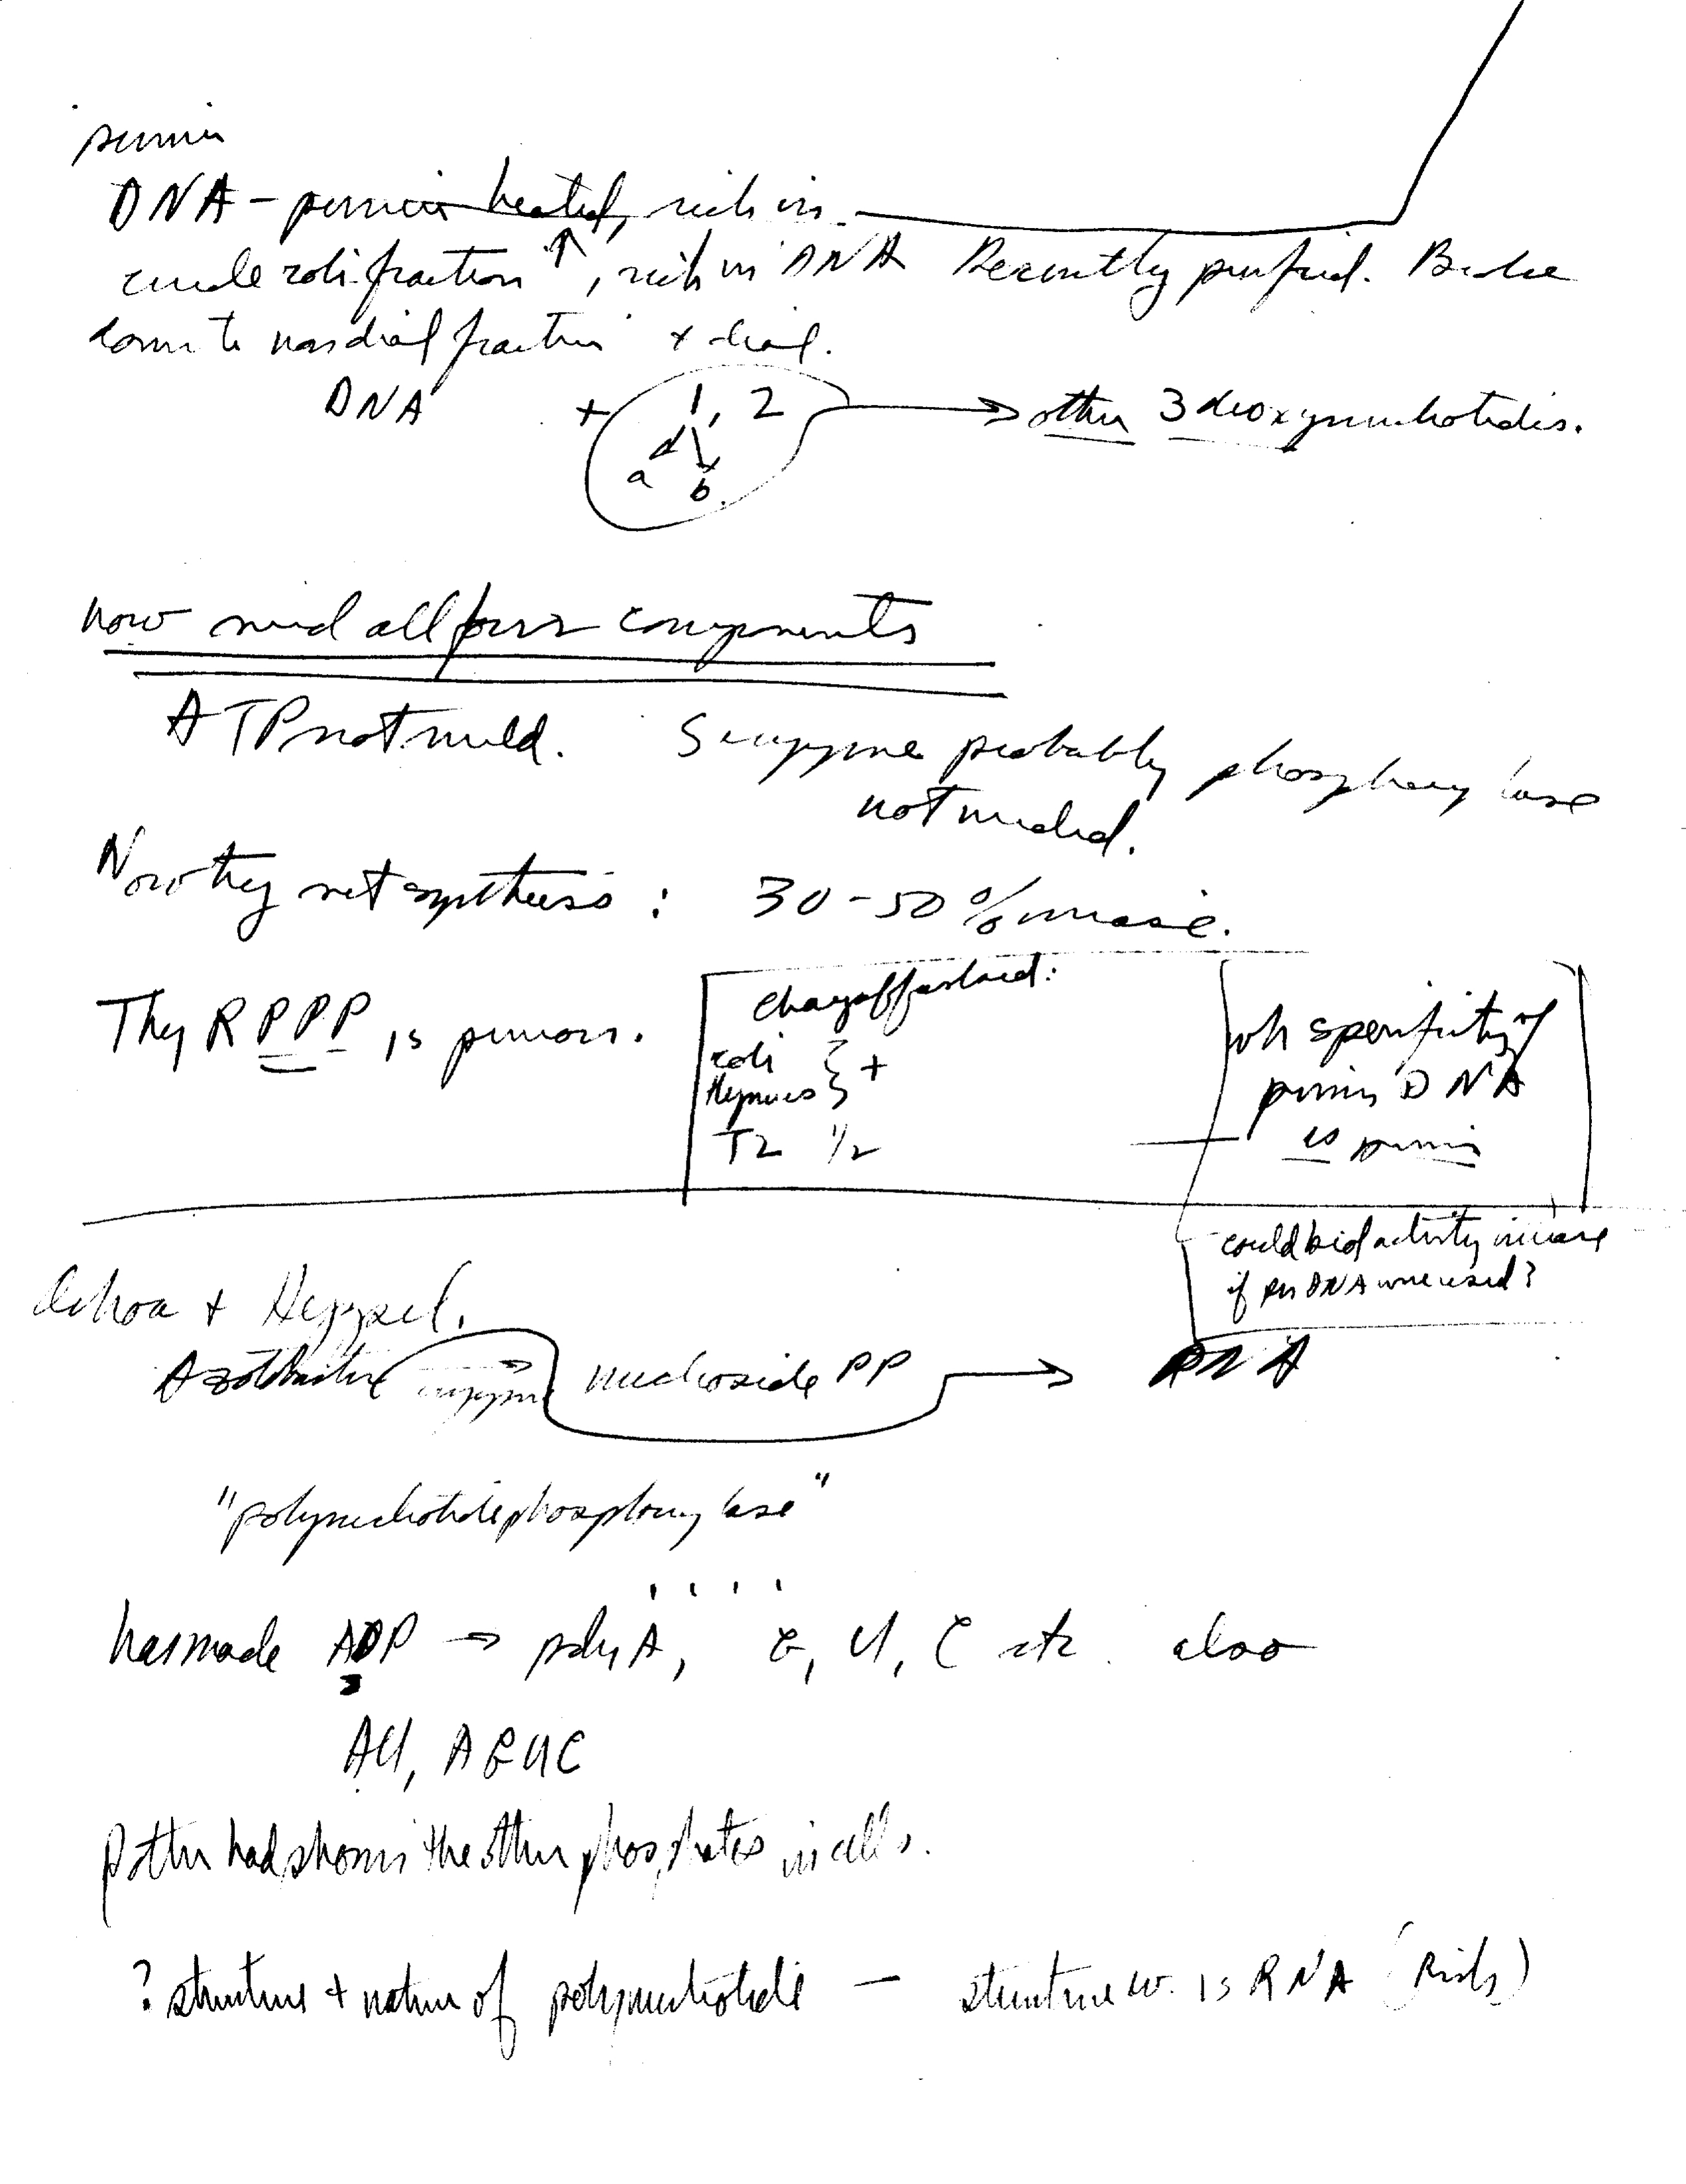 primer
DNA - primer heated, rich in
crude coli fraction ↑, rich in DNA Recently purified. Broke
down to nondial fraction + dial.
DNA + 1, 2 → other 3 deoxynucleotides.
a b
now need all four components
ATP not needed. S enzyme probably phosphorylase
not needed.
Now they net synthesis : 30-50% increase.
Thy R PPP is primer.
Chargaff
coli } +
thymus
T2 1/2
wh specificity of
primer DNA
is primer
could biol activity increase
if DNA were used?
Ochoa + Heppel.
Azotobacter enzyme nucleoside PP → RNA
"polynucleotide phosphorylase"
has made ADP → poly A, G, U, C etc. also
AU, AGUC
Potter had shown the other phosphates in cells.
? structure + nature of polynucleotide — structure w. is RNA (Rich)